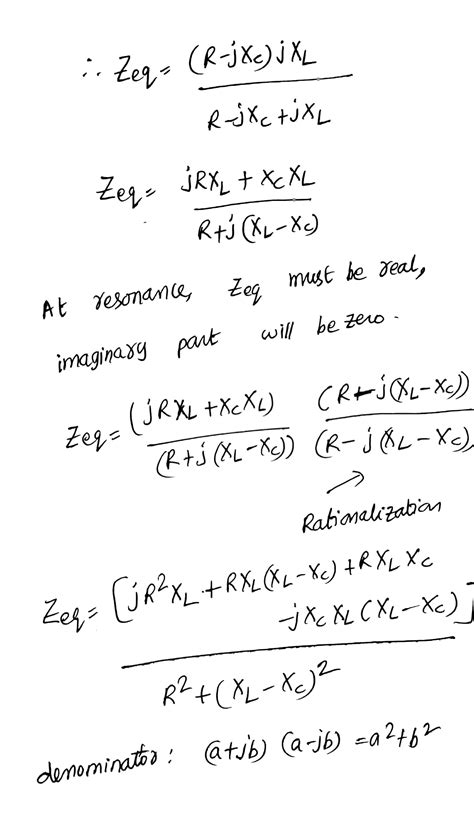 ∴ Zeq = (R-jXc)jXL
R-jXc+jXL
Zeq = jRXL + XcXL
R+j(XL-Xc)
At resonance, Zeq must be real,
imaginary part will be zero.
Zeq = (jRXL+XcXL) (R-j(XL-Xc))
(R+j(XL-Xc)) (R-j(XL-Xc)
Rationalization
Zeq = [jR²XL+RXL(XL-Xc)+RXLXc
-jXcXL(XL-Xc)]
R²+(XL-Xc)²
denominator: (a+jb) (a-jb) = a²+b²